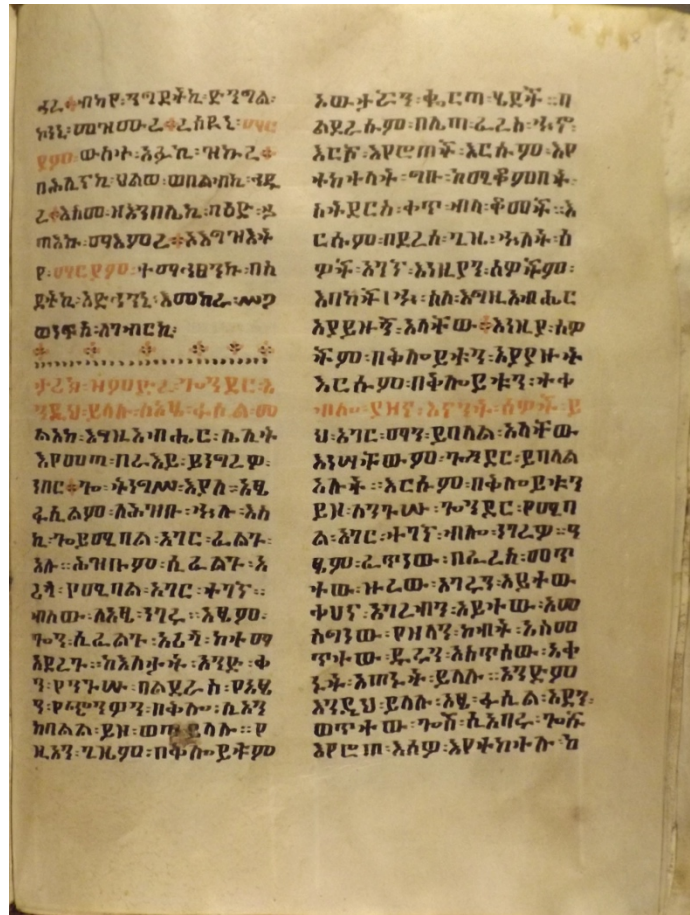 ዳረ፨ብካየ፡ንግደትኪ፡ድንግል፡
ኮንኒ፡መዝሙረ፨ረስዪኒ፡ማር
ያም፡ውስተ፡አፉኪ፡ዝኩረ፨
በሕሊናኪ፡ህልወ፡ወበልብኪ፡ኅዱ
ረ፨እስመ፡ዘእንበሌኪ፡ባዕድ፡
ጣእኩ፡ማእምረ፨እእግዝእት
የ፡ማርያም፡ተማኅፀንኩ፡በእ
ደትኪ፡አድኅንኒ፡እመከራ፡ሥጋ
ወነፍስ፡ለገብርኪ፡
ታሪክ፡ዝምድረ፡ጐንደር፡እ
ንዲህ፡ይላሉ፡ስአፄ፡ፋሲል፡መ
ልአክ፡እግዚአብሔር፡ሌሊት
እየመጣ፡በራእይ፡ይነግረዎ፡
ነበር፨ጐ፡ትነግሥ፡እያለ፡አፄ
ፋሲልም፡ለሕዝቡ፡ኵሉ፡እስ
ኪ፡ጐ፡የሚባል፡አገር፡ፈልጉ፡
አሉ፡፡ሕዝቡም፡ሲፈልጉ፡እ
ረጓ፡የሚባል፡አገር፡ተገኘ፡፡
ብለው፡ለአፄ፡ነገሩ፡፡አፄም፡
ጐን፡ሲፈልጉ፡አሪጓ፡ከተማ
አደረጉ፡፡ከእለታት፡አንድ፡ቀ
ን፡የንጉሡ፡ባልደራስ፡የአፄ
ን፡የጭነዎን፡በቅሎ፡ሲእን
ከባልል፡ይዘ፡ወጣ፡ይላሉ፡፡የ
ዚአን፡ጊዜም፡በቅሎይቱም
አውታሯን፡ቈርጣ፡ሄደች፡፡ባ
ልደረሱም፡በሌጣ፡ፈረስ፡ኵኖ፡
እርሷ፡እየሮጠች፡እርሱም፡እየ
ተከተላት፡ግቡ፡ከሚቆምበት፡
ስትደርስ፡ቀጥ፡ብላ፡ቆመች፡እ
ርሱም፡በደረሰ፡ጊዜ፡ኵለት፡ሰ
ዎች፡አገኘ፡እነዚያን፡ሰዎችም፡
እባካችሁ፡ስለ፡እግዚአብሔር
አያይዙኝ፡አላቸው፨እነዚያ፡ሰዎ
ችም፡በቅሎይቱን፡አያያዙት
እርሱም፡በቅሎይቱን፡ተቀ
ብሎ፡ያዘና፡እናንት፡ሰዎች፡ይ
ህ፡አገር፡ማን፡ይባላል፡አላቸው
እነሣቸውም፡ጐንደር፡ይባላል
አሉት፡፡እርሱም፡በቅሎይቱን
ይዘ፡ለንጉሡ፡ጐንደር፡የሚባ
ል፡አገር፡ተገኘ፡ብሎ፡ነገረዎ፡አ
ፄም፡ፈጥነው፡በፈረስ፡መጥ
ተው፡ዙረው፡አገሩን፡አይተው
ቀሀና፡እግረብን፡አይተው፡አመ
ሰግነው፡የዝላን፡ከብት፡አስመ
ጥተው፡ዱሩን፡አስጥሰው፡አቀ
ኑት፡አጠኑት፡ይላሉ፡፡እንድም
እንዲህ፡ይላሉ፡አፄ፡ፋሲል፡አደን፡
ወጥተው፡ጐሽ፡ሲአባሩ፡ጐሹ
እየሮጠ፡እሰዎ፡እየተከተሉ፡ከ